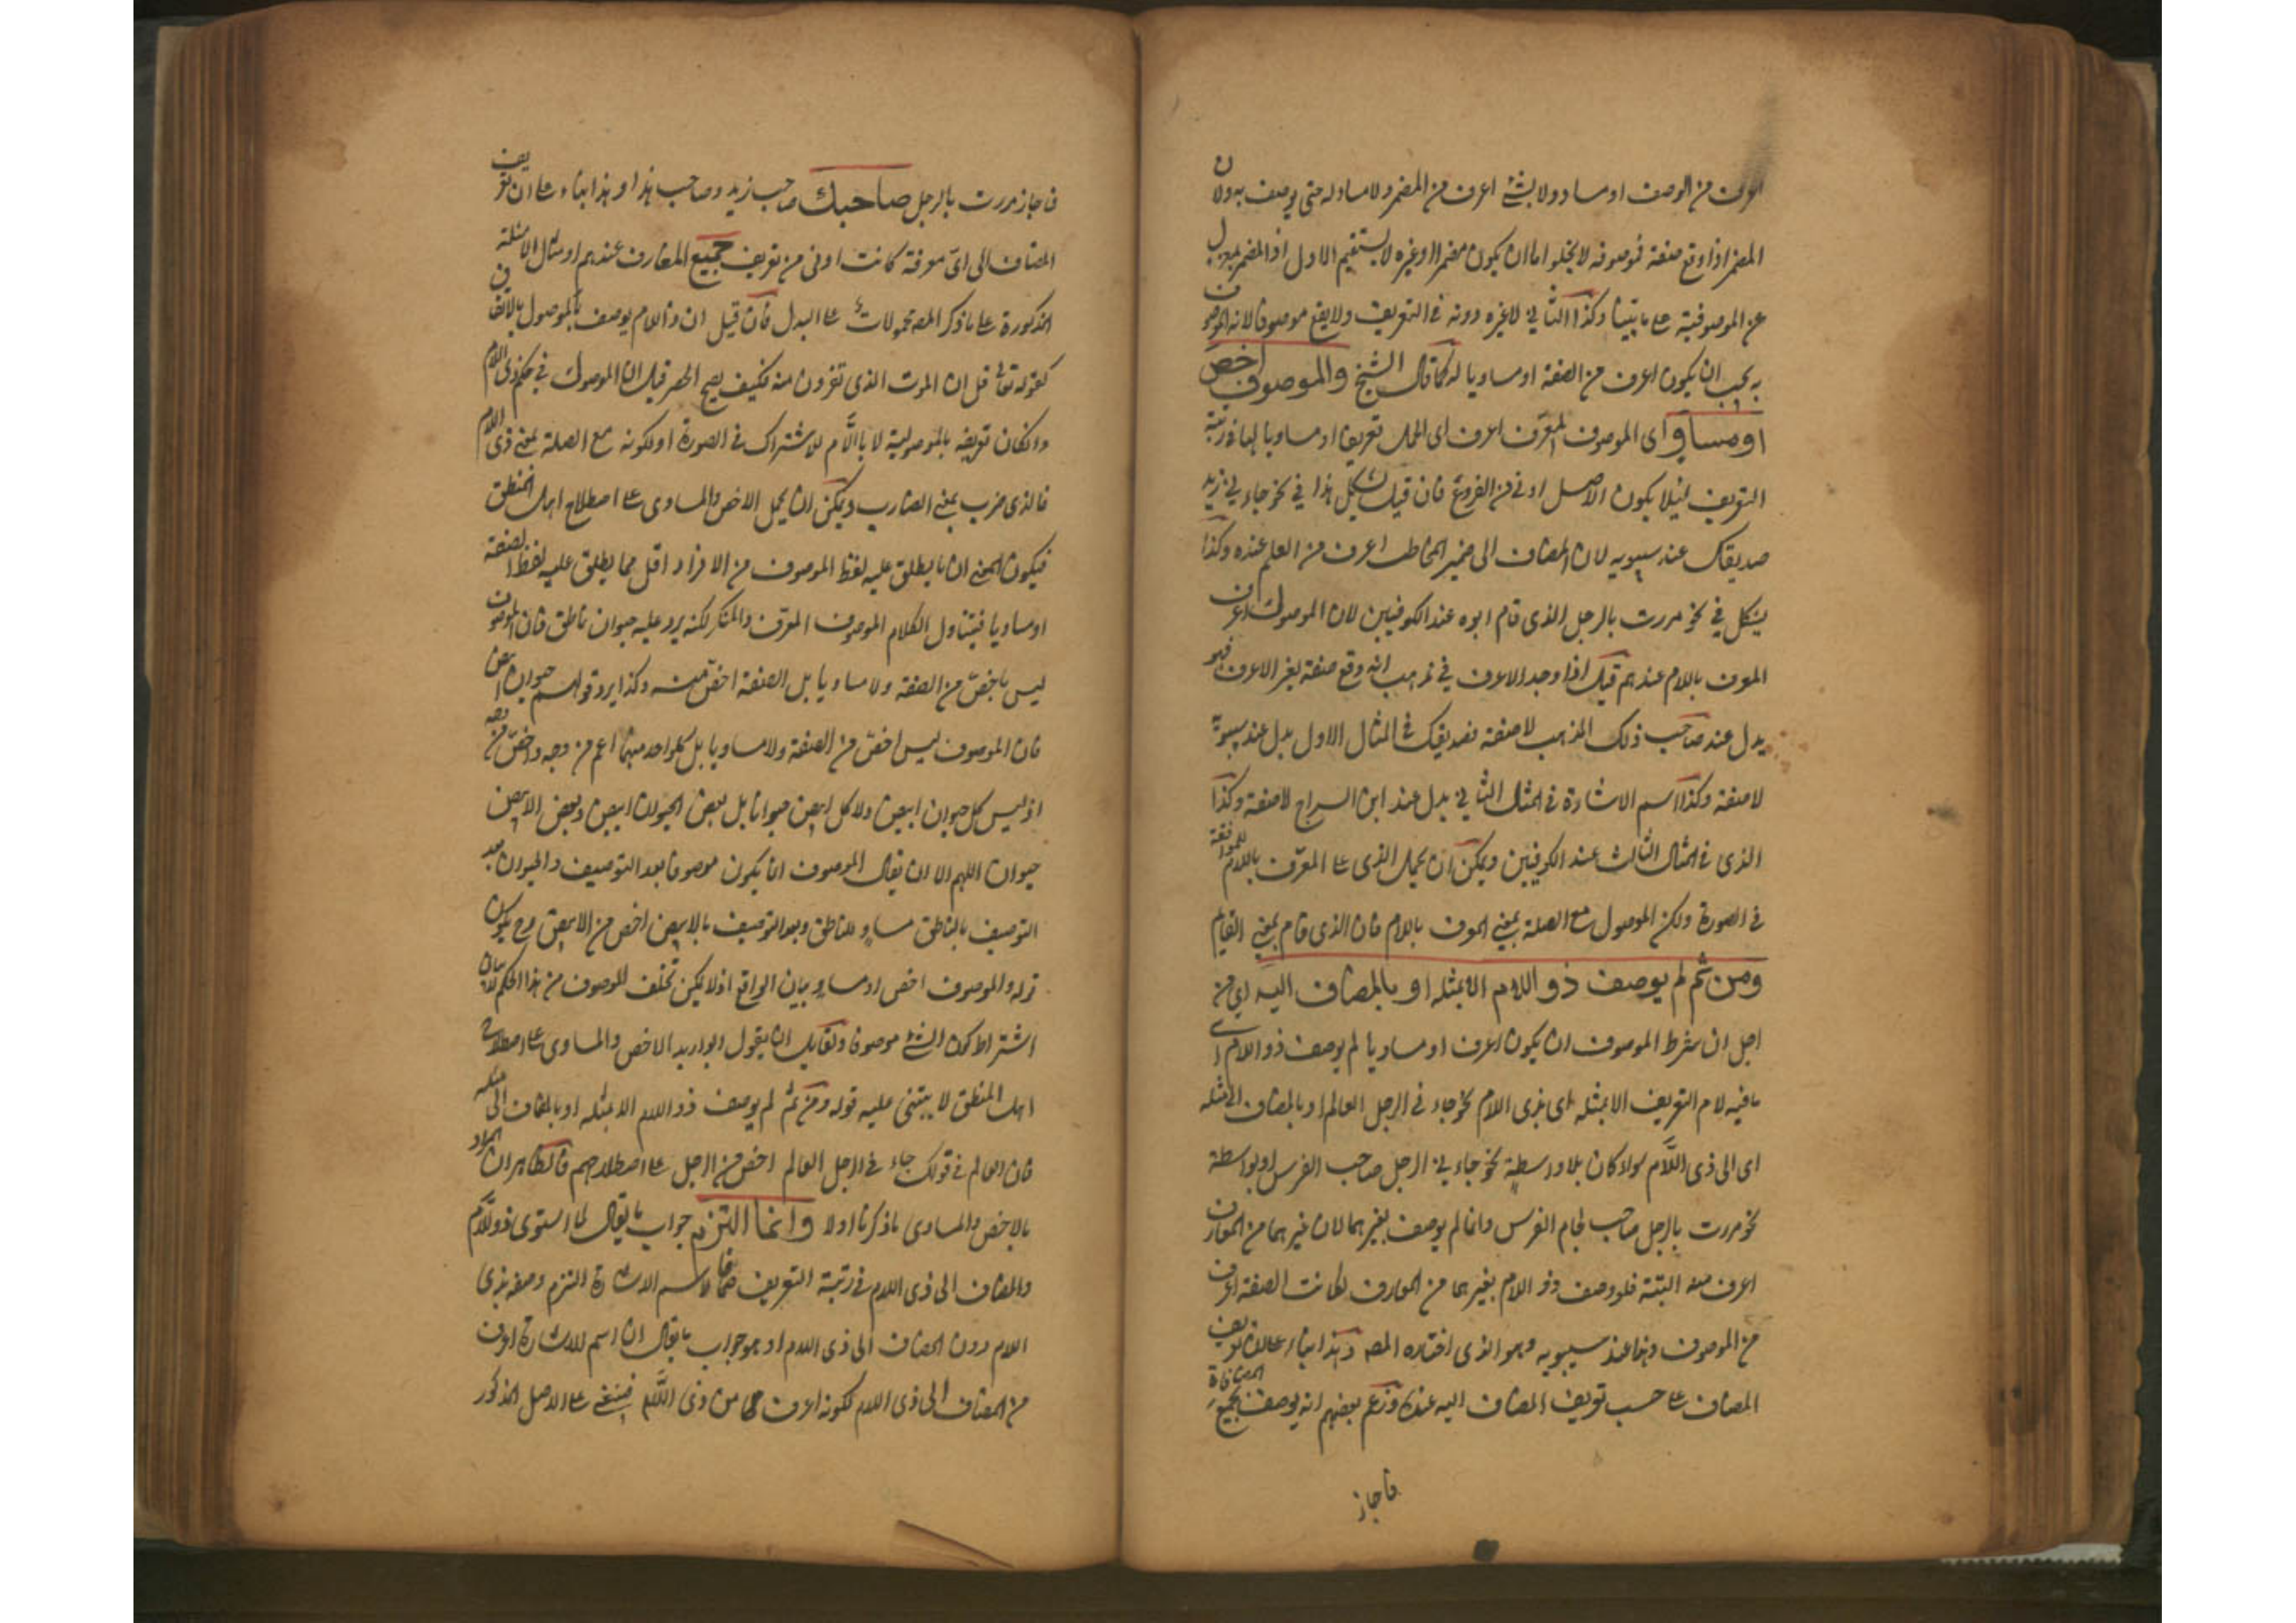 اعرف من الوصف او مساو ولا شئ اعرف من المضمر ولا مساو له حتى يوصف به ولان
المضمر اذا وقع صفة فموصوفه لا يخلوا اما ان يكون مضمرا او غيره لا يستقيم الاول اذ المضمر بمعزل
عن الموصوفية على ما بينا وكذا الثاني لان غيره دونه في التعريف ولا يقع موصوفا لانه الموصوف
به يجب ان يكون اعرف من الصفة او مساويا له كما قال الشيخ والموصوف اخص
او مساو اى الموصوف المعرف اعرف اى اكمل تعريفا او مساويا لها في رتبة
التعريف لئلا يكون الاصل ادنى من الفروع فان قيل يشكل هذا في نحو جاءني زيد
صديقك عند سيبويه لان المضاف الى ضمير المخاطب اعرف من العلم عنده وكذا
يشكل في نحو مررت بالرجل الذى قام ابوه عند الكوفيين لان الموصول اعرف
المعرف باللام عندهم قيل اذا وجد الاعرف في مذهب انه وقع صفة لغير الاعرف فهو
بدل عند صاحب ذلك المذهب لا صفة فصديقك في المثال الاول بدل عند سيبويه
لا صفة وكذا اسم الاشارة في المثال الثاني بدل عند ابن السراج لا صفة وكذا
الذى في المثال الثالث عند الكوفيين ويمكن ان يحمل الذى على المعرف باللام للموافقة
في الصورة ولكن الموصول مع الصلة بمعنى المعرف باللام فان الذى قام بمعنى القايم
ومن ثم لم يوصف ذو اللام الا بمثله او بالمضاف اليه اي من
اجل ان شرط الموصوف ان يكون اعرف او مساويا لم يوصف ذو اللام اى
ما فيه لام التعريف الا بمثله اى بذى اللام نحو جاءني الرجل العالم او بالمضاف الى مثله
اى الى ذى اللام سواء كان بلا واسطة نحو جاءني الرجل صاحب الفرس او بواسطة
نحو مررت بالرجل صاحب لجام الفرس وانما لم يوصف بغيرهما لان غيرهما من المعارف
اعرف منه البتة فلو وصف ذو اللام بغيرهما من المعارف لكانت الصفة اعرف
من الموصوف وهذا عند سيبويه وهو الذى اختاره المصـ وهذا بناء على ان تعريف
المضاف على حسب تعريف المضاف اليه عنده وزعم بعضهم انه يوصف بجميع المضافات
فاجاز
فاجاز مررت بالرجل صاحبك صاحب زيد وصاحب هذا او هذا بناء على ان تعريف
المضاف الى اى معرفة كانت ادنى من تعريف جميع المعارف عندهم او مثال الامثلة
المذكورة على ما ذكر المصـ محمولات على البدل فان قيل ان ذا اللام يوصف بالموصول بالاتفاق
كقوله تعالى قل ان الموت الذى تفرون منه فكيف يصح الحصر قيل ان الموصول في حكم ذى اللام
وان كان تعريفه بالموصولية لا باللام للاشتراك في الصورة او لكونه مع الصلة بمعنى ذى اللام
فالذى ضرب بمعنى الضارب ويمكن ان يحمل الاخص والمساوى على اصطلاح اهل المنطق
فيكون المعنى ان ما يطلق عليه لفظ الموصوف من الافراد اقل مما يطلق عليه لفظ الصفة
او مساويا فيتناول الكلام الموصوف المعرف والمنكر لكنه يرد عليه حيوان ناطق فان الموصوف
ليس باخص من الصفة ولا مساويا بل الصفة اخص منه وكذا يرد قولهم حيوان ابيض
فان الموصوف ليس اخص من الصفة ولا مساويا بل كل واحد منهما اعم من وجه واخص من وجه
اذ ليس كل حيوان ابيض ولا كل ابيض حيوانا بل بعض الحيوان ابيض وبعض الابيض
حيوان اللهم الا ان يقال الموصوف انما يكون موصوفا بعد التوصيف والحيوان بعد
التوصيف بالناطق مساو للناطق وبعد التوصيف بالابيض اخص من الابيض وح يكون
قوله والموصوف اخص او مساو بيان الواقع اذ لا يمكن تخلف الموصوف من هذا الحكم لا بيان
اشتراط كون الشئ موصوفا ولقايل ان يقول لو اريد الاخص والمساوى على اصطلاح
اهل المنطق لا يبتنى عليه قوله ومن ثم لم يوصف ذو اللام الا بمثله او بالمضاف الى مثله
فان العالم في قولك جاءني الرجل العالم اخص من الرجل على اصطلاحهم فالظاهر ان المراد
بالاخص والمساوى ما ذكرنا اولا وانما التزم جواب ما يقال لما استوى ذو اللام
والمضاف الى ذى اللام في رتبة التعريف فما لاسم الاشارة التزم وصفه بذى
اللام دون المضاف الى ذى اللام او هو جواب ما يقال ان اسم الاشارة اعرف
من المضاف الى ذى اللام لكونه اعرف من ذى اللام فينبغى على الاصل المذكور